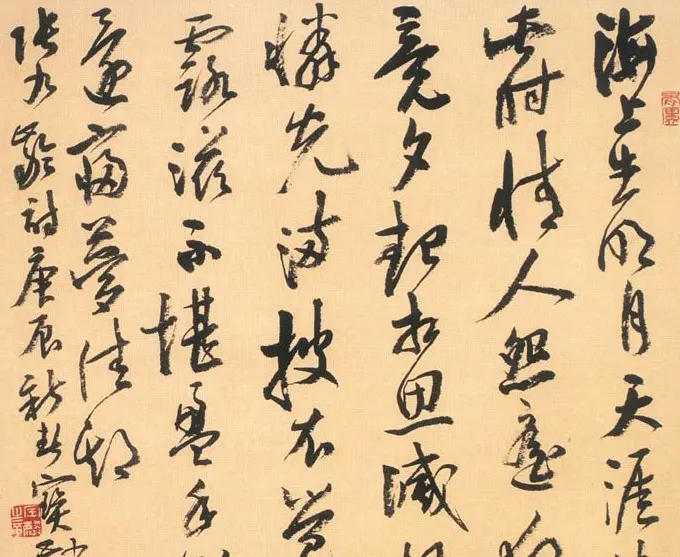 海上生明月天涯
此時情人怨遙夜
竟夕起相思滅
憐光滿披衣覺
露滋不堪盈手
還寢夢佳期
張九齡詩庚辰新春寶